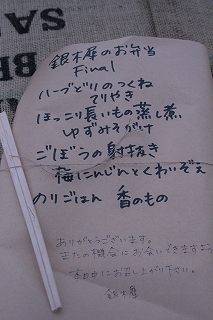 銀木犀のお弁当
Final
ハーブどりのつくね
てりやき
ほっこり長いもの蒸し煮
ゆずみそがけ
ごぼうの射抜き
梅にんじんとくわいぞえ
のりごはん 香のもの
ありがとうございます。
またの機会にお会いできますよう
お召し上がり下さい。
銀木犀
SA
BR